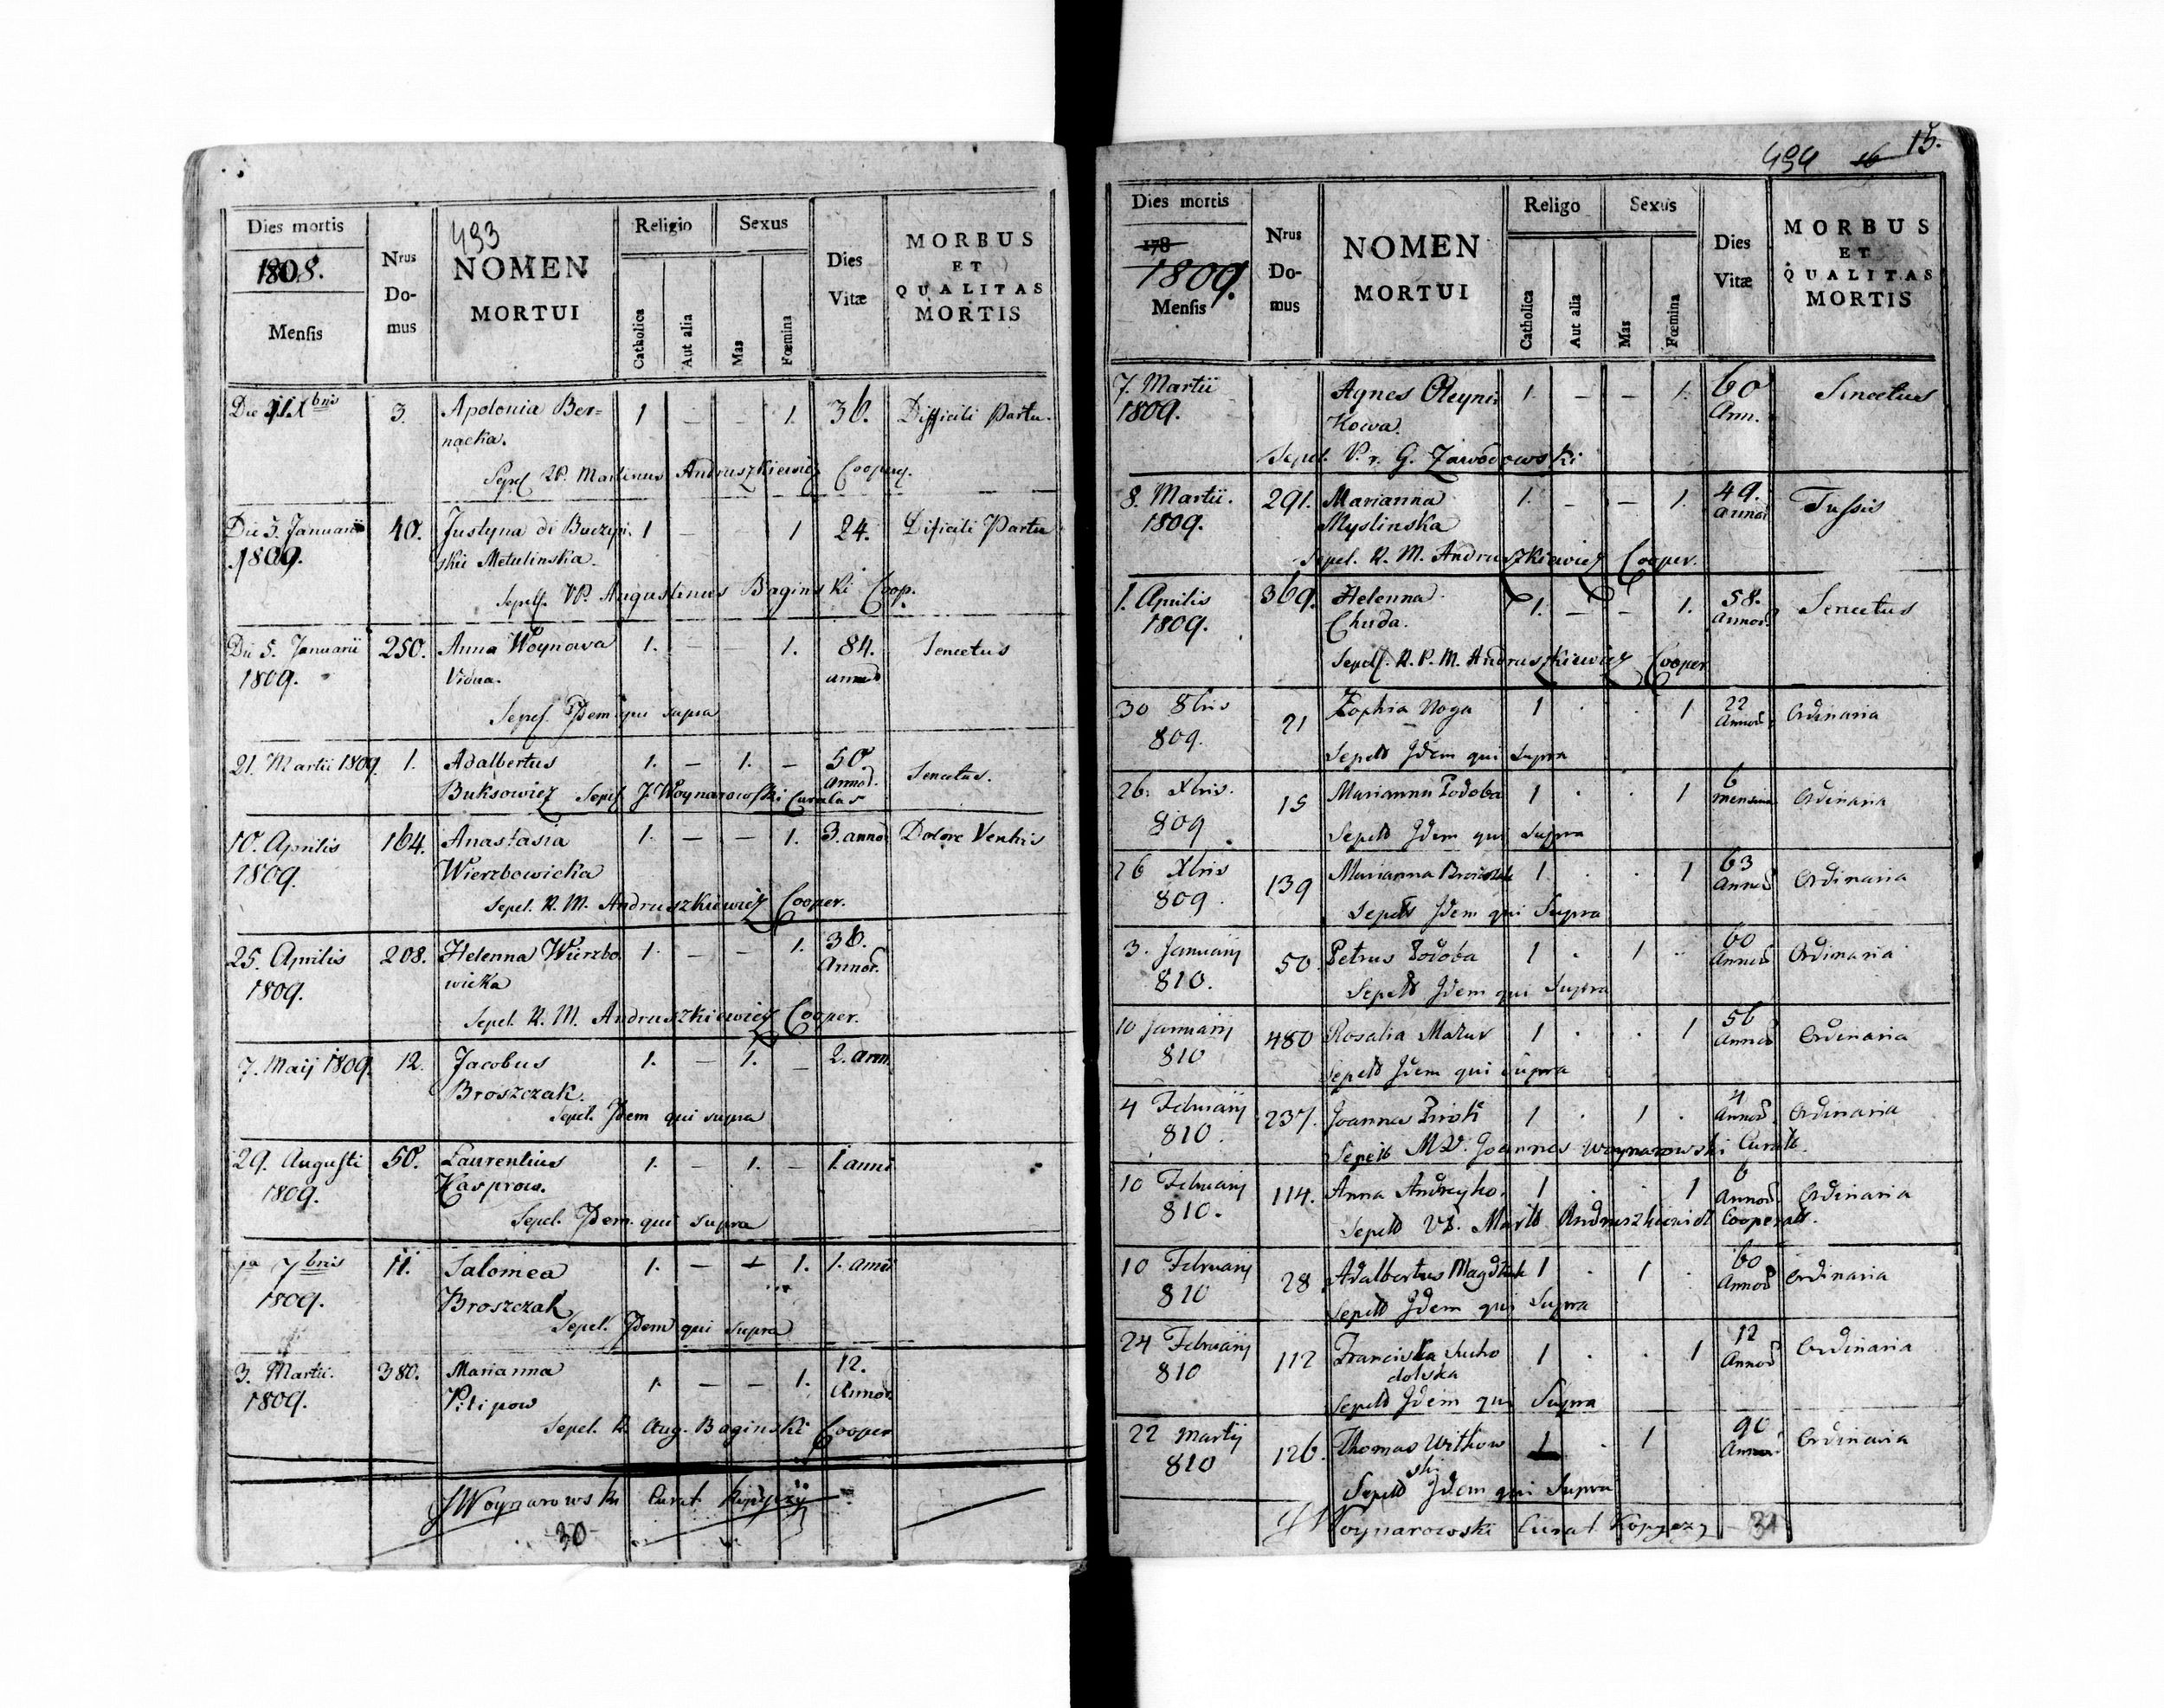 Dies mortis
1808.
Mensis
Nrus
Do-
mus
493
NOMEN
MORTUI
Religio
Catholica
Aut alia
Sexus
Mas
Fœmina
Dies
Vitæ
MORBUS
ET
QUALITAS
MORTIS
Die Xbris 3. Apolonia Ber= 1 – – 1. 36. Difficili Partu.
nacka.
Sepel VP. Martinus Andruszkiewicz
Die 3. Januarii 40. Justyna di Buczyń. 1 – – 1 24. Dificili Partu
1809. skie Metulinska.
VP. Augustinus Baginski Coop.
Die 5. Januarii 250. Anna Woynowa 1. – – 1. 84. Senectus
1809. Vidua.
Sepel. Idem qui supra
21. Martii 1809. 1. Adalbertus 1. – 1. – 50. Senectus.
Annor.
Buksowicz Sepel J. Woynarowski Curatus
10. Aprilis 164. Anastasia 1. – – 1. 3. annor Dolore Ventris
1809. Wierzbowicka
Sepel. R. M. Andruszkiewicz Cooper.
25. Aprilis 208. Helenna Wierzbo 1. – – 1. 36.
1809. wicka Annor.
Sepel. R. M. Andruszkiewicz Cooper.
7. Maij 1809. 12. Jacobus 1. – 1. – 2. ann
Broszczak.
Sepel. Idem qui supra
29. Augusti 50. Laurentius 1. – 1. – 1. anni
1809. Kasprow.
Sepel. Idem qui supra
1a 7bris 11. Salomea 1. – + 1. 1. anni
1809. Broszczak
Sepel. Idem qui supra
3. Martii. 380. Marianna 1. – – 1. 12.
1809. Pilipow Annor
Sepel. R. Aug. Baginski Cooper
JWoynarowski Curat.
30
494 16 15.
Dies mortis
178
1809.
Mensis
Nrus
Do-
mus
NOMEN
MORTUI
Religo
Catholica
Aut alia
Sexus
Mas
Fœmina
Dies
Vitæ
MORBUS
ET
QUALITAS
MORTIS
7. Martii Agnes Oleyni: 1. – – 1. 60 Senectus
1809. Kowa. Ann.
Sepel. P. r. G. Zawodowski
8. Martii. 291. Marianna 1. – – 1. 49. Tussis
1809. Myslinska annor
Sepel. R. M. Andruszkiewicz Cooper.
1. Aprilis 369. Helenna 1. – – 1. 58. Senectus
1809. Chuda. Annor.
Sepel. R. P. M. Andruszkiewicz Cooper
30 8bris 21 Zophia Noga 1 . . 1 22 Ordinaria
809. Annor
Sepelt Idem qui Supra
26. Xbris. 15 Marianna Podoba 1 . . 1 6 Ordinaria
809
Sepelt Idem qui Supra
26 Xbris 139 Marianna 1 . . 1 63 Ordinaria
809. Annor
Sepelt Idem qui Supra
3. Januarij 50. Petrus Podoba 1 . 1 . 60 Ordinaria
810. Annor
Sepelt Idem qui Supra
10 Januarij 480 Rosalia Mazur 1 . . 1 56 Ordinaria
810 Annor
Sepelt Idem qui Supra
4 Februarij 237. Joannes 1 . 1 . 4 Ordinaria
810. Annor
Sepelt Joannes Woynarowski Curats.
10 Februarij 114. Anna Andreyko. 1 . . 1 6 Ordinaria
810. Annor.
Sepelt VP. Marts Andruszkiewicz Cooperats.
10 Februarij 28. Adalbertus 1 . 1 . 60 Ordinaria
810 Annor
Sepelt Idem qui Supra
24 Februarij 112 Franciska Sucho 1 . . 1 12 Ordinaria
810 dolska Annor
Sepelt Idem qui Supra
22 Martij 126. Thomas Witkow 1 . 1 90 Ordinaria
810 ski Annor
Sepelt Idem qui Supra
JWoynarowski Curat. 31